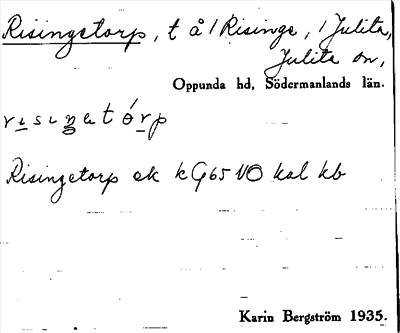 Risingetorp, t å / Risinge, i Julita,
Julita sn,
Oppunda hd, Södermanlands län.
Risingetorp ek kG65 NO kal kb
Karin Bergström 1935.